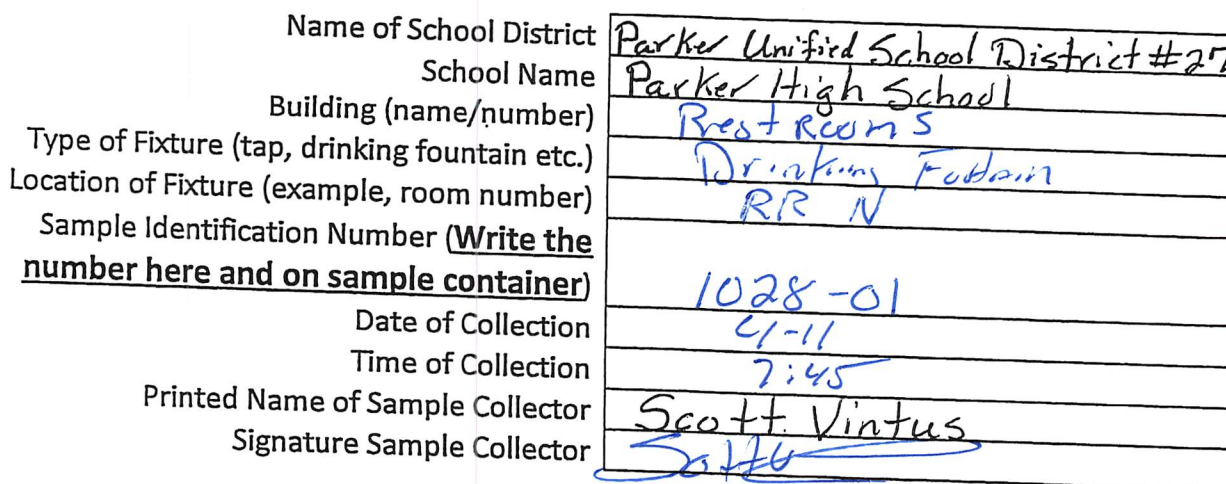 Name of School District Parker Unified School District #27
School Name Parker High School
Building (name/number) Rest Rooms
Type of Fixture (tap, drinking fountain etc.) Drinking Fountain
Location of Fixture (example, room number) RR N
Sample Identification Number (Write the
number here and on sample container) 1028-01
Date of Collection 4-11
Time of Collection 7:45
Printed Name of Sample Collector Scott Vintus
Signature Sample Collector